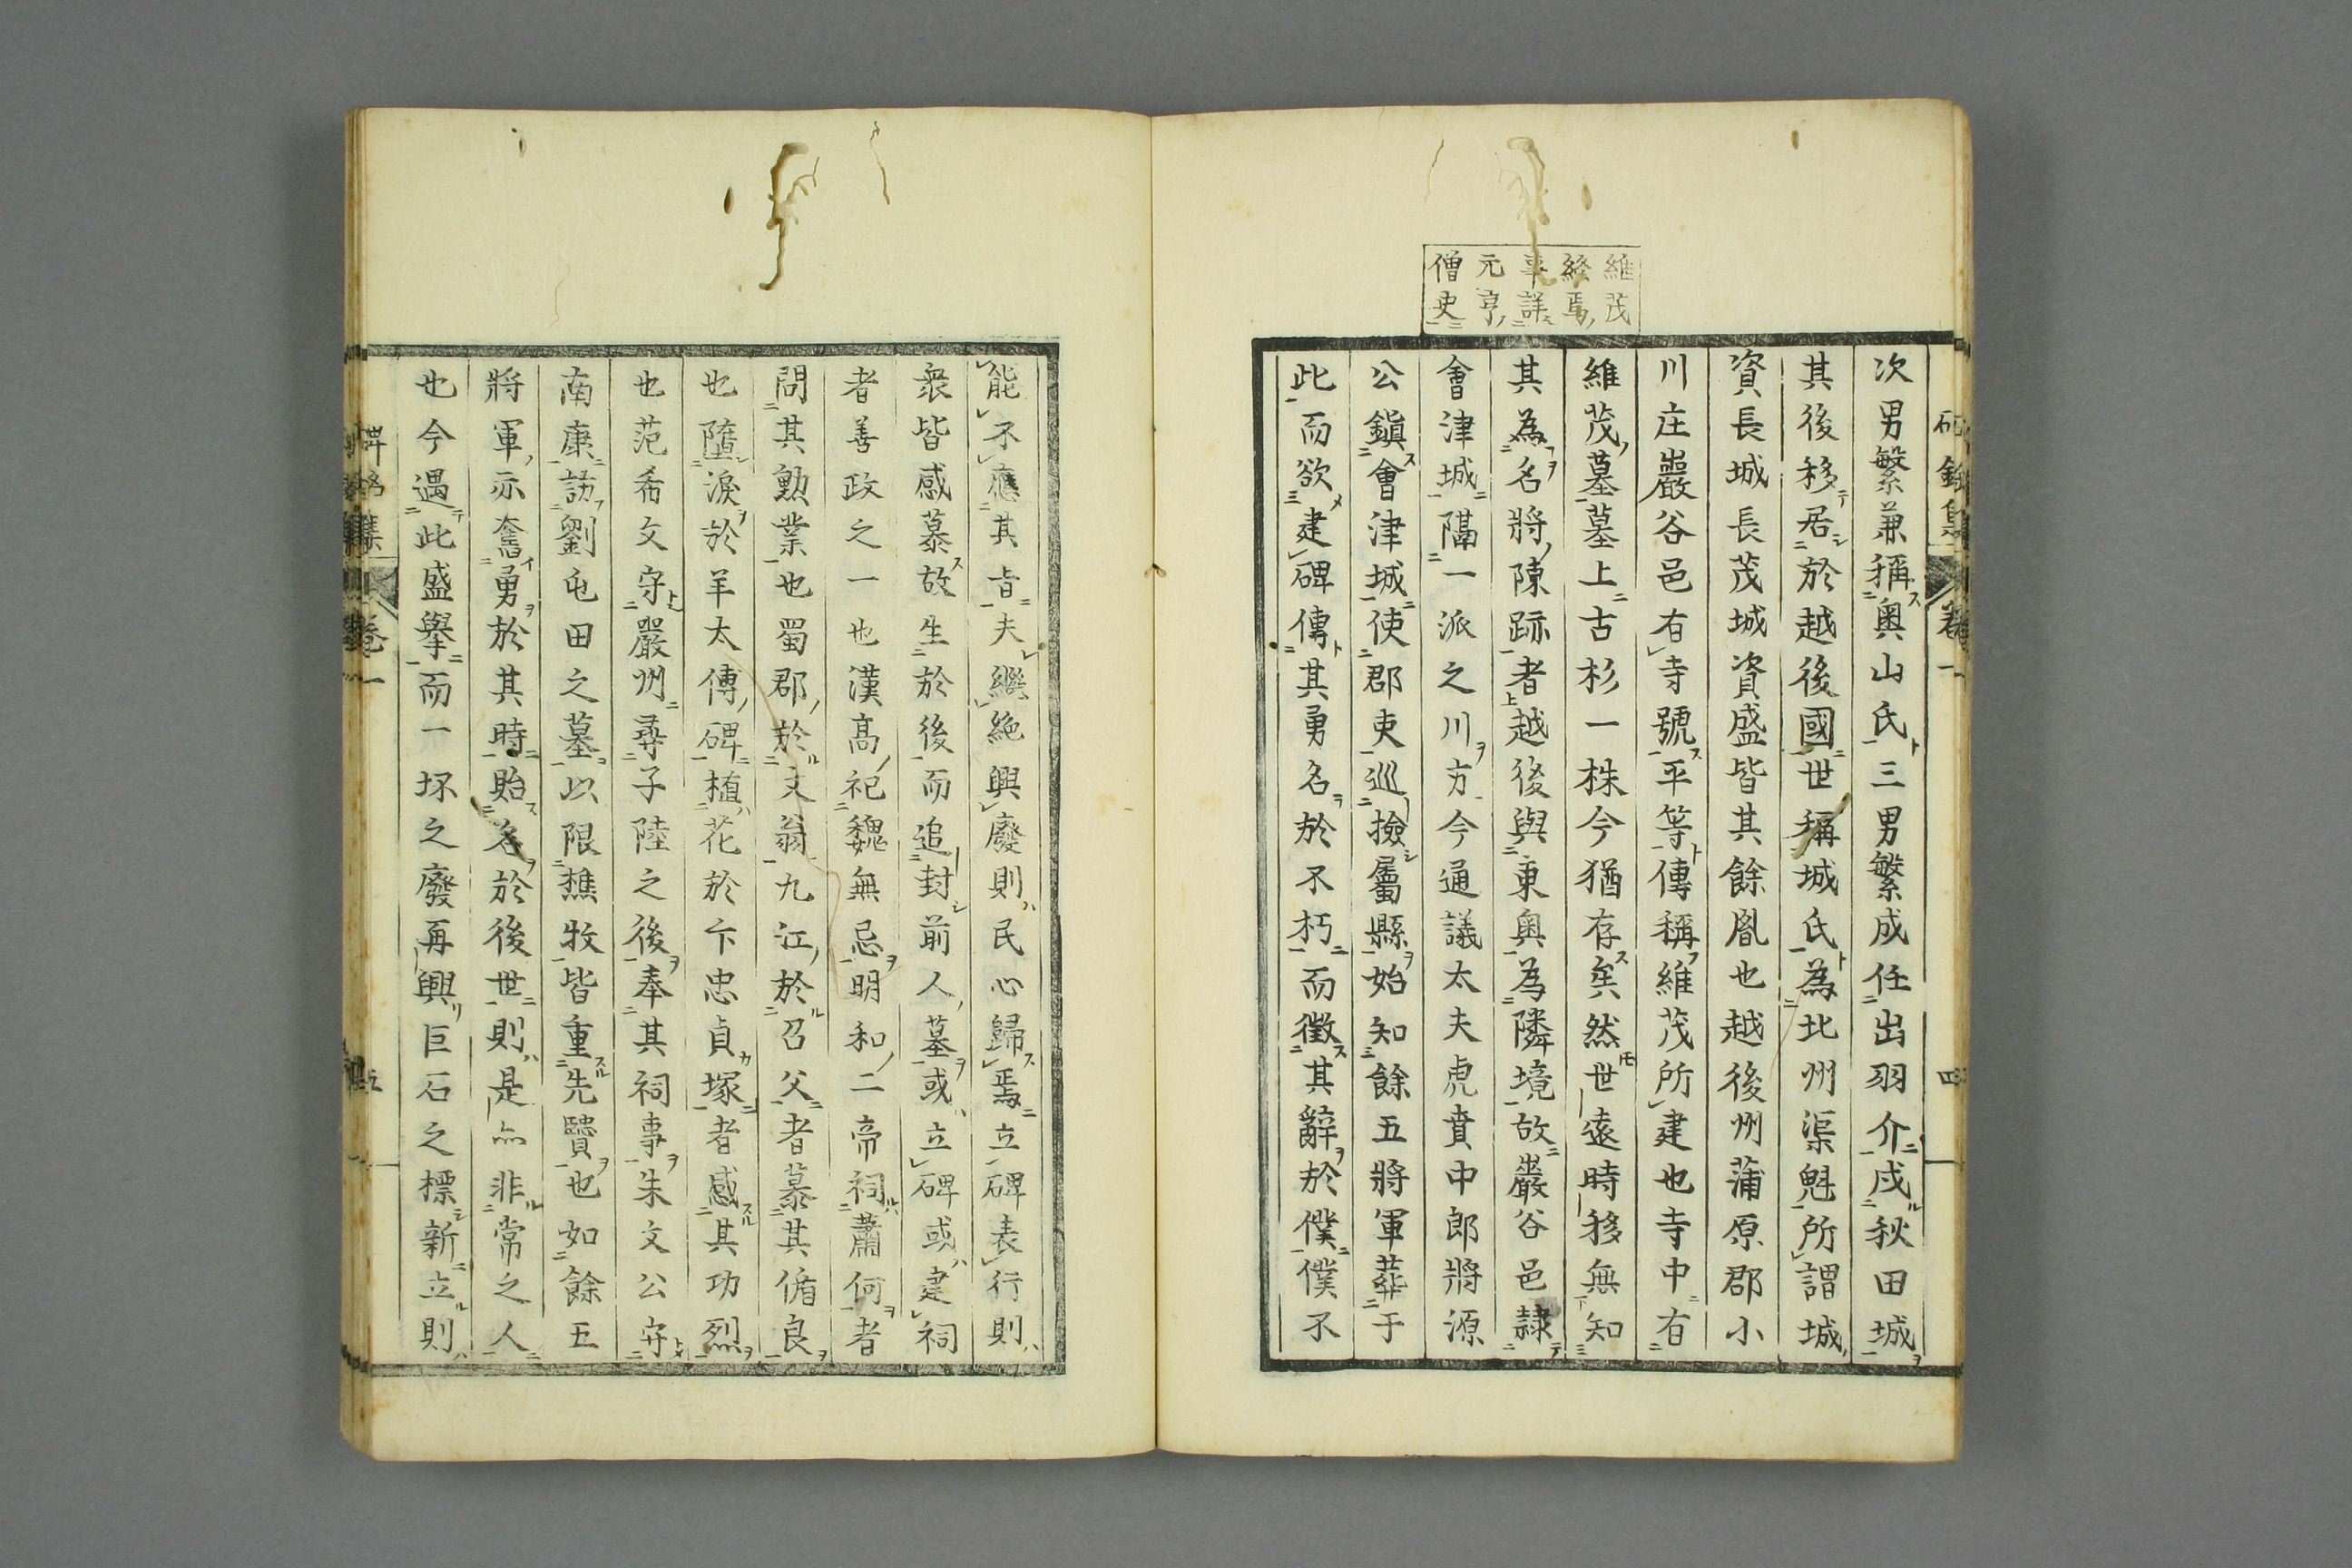 維茂
終焉
事詳
元亨
僧史
次男繁兼稱奥山氏三男繁成任出羽介戍秋田城
其後移居於越後國世稱城氏為北州渠魁所謂城
資長城長茂城資盛皆其餘胤也越後州蒲原郡小
川庄巖谷邑有寺號平等傳稱維茂所建也寺中有
維茂墓墓上古杉一株今猶存矣然世遠時移無知
其為名將陳跡者越後與東奥為隣境故巖谷邑隷
會津城隔一派之川方今通議太夫虎賁中郎將源
公鎭會津城使郡吏巡撿屬縣始知餘五將軍葬于
此而欲建碑傳其勇名於不朽而徴其辭於僕僕不
能不應其旨夫繼絶興廢則民心歸焉立碑表行則
衆皆感慕故生於後而追封前人墓或立碑或建祠
者善政之一也漢高祀魏無忌明和二帝祠蕭何者
問其勲業也蜀郡於文翁九江於召父者慕其循良
也墮涙於羊太傅碑植花於卞忠貞塚者感其功烈
也范希文守嚴州尋子陸之後奉其祠事朱文公守
南康訪劉屯田之墓以限樵牧皆重先賢也如餘五
將軍亦奮勇於其時貽名於後世則是亦非常之人
也今遇此盛擧而一坏之廢再興巨石之標新立則